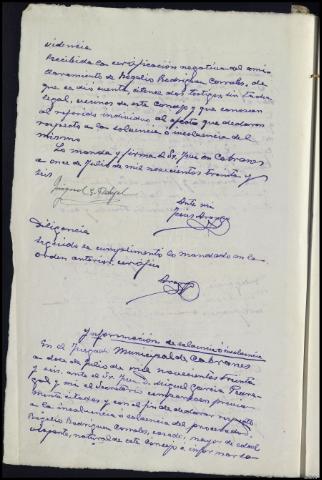 videncia
Recibida la certificación negativa del ami-
llaramiento de Rogelio Rodriguez Corrales, de
que se dió cuenta, cítense dos testigos sin tacha
legal, vecinos de este Concejo y que conozcan
al referido individuo al efecto que declaren
respecto a la solvencia o insolvencia del
mismo
Lo manda y firma el Sr. Juez de Cabranes
a once de Julio de mil novecientos treinta y
seis
Miguel G.
Ante mi
Diligencia
Seguida se cumplimentó lo mandado en la
orden anterior, certifico
Información de solvencia o insolvencia
En el Juzgado Municipal de Cabranes
a doce de Julio de mil novecientos treinta
y seis, ante el Sr. Juez Miguel Garcia
y mi el Secretario comparecen previa-
mente citados y con el fin de declarar respecto
a la insolvencia o solvencia del procesado,
Rogelio Rodriguez Corrales, casado, mayor de edad
natural de este concejo e informaron